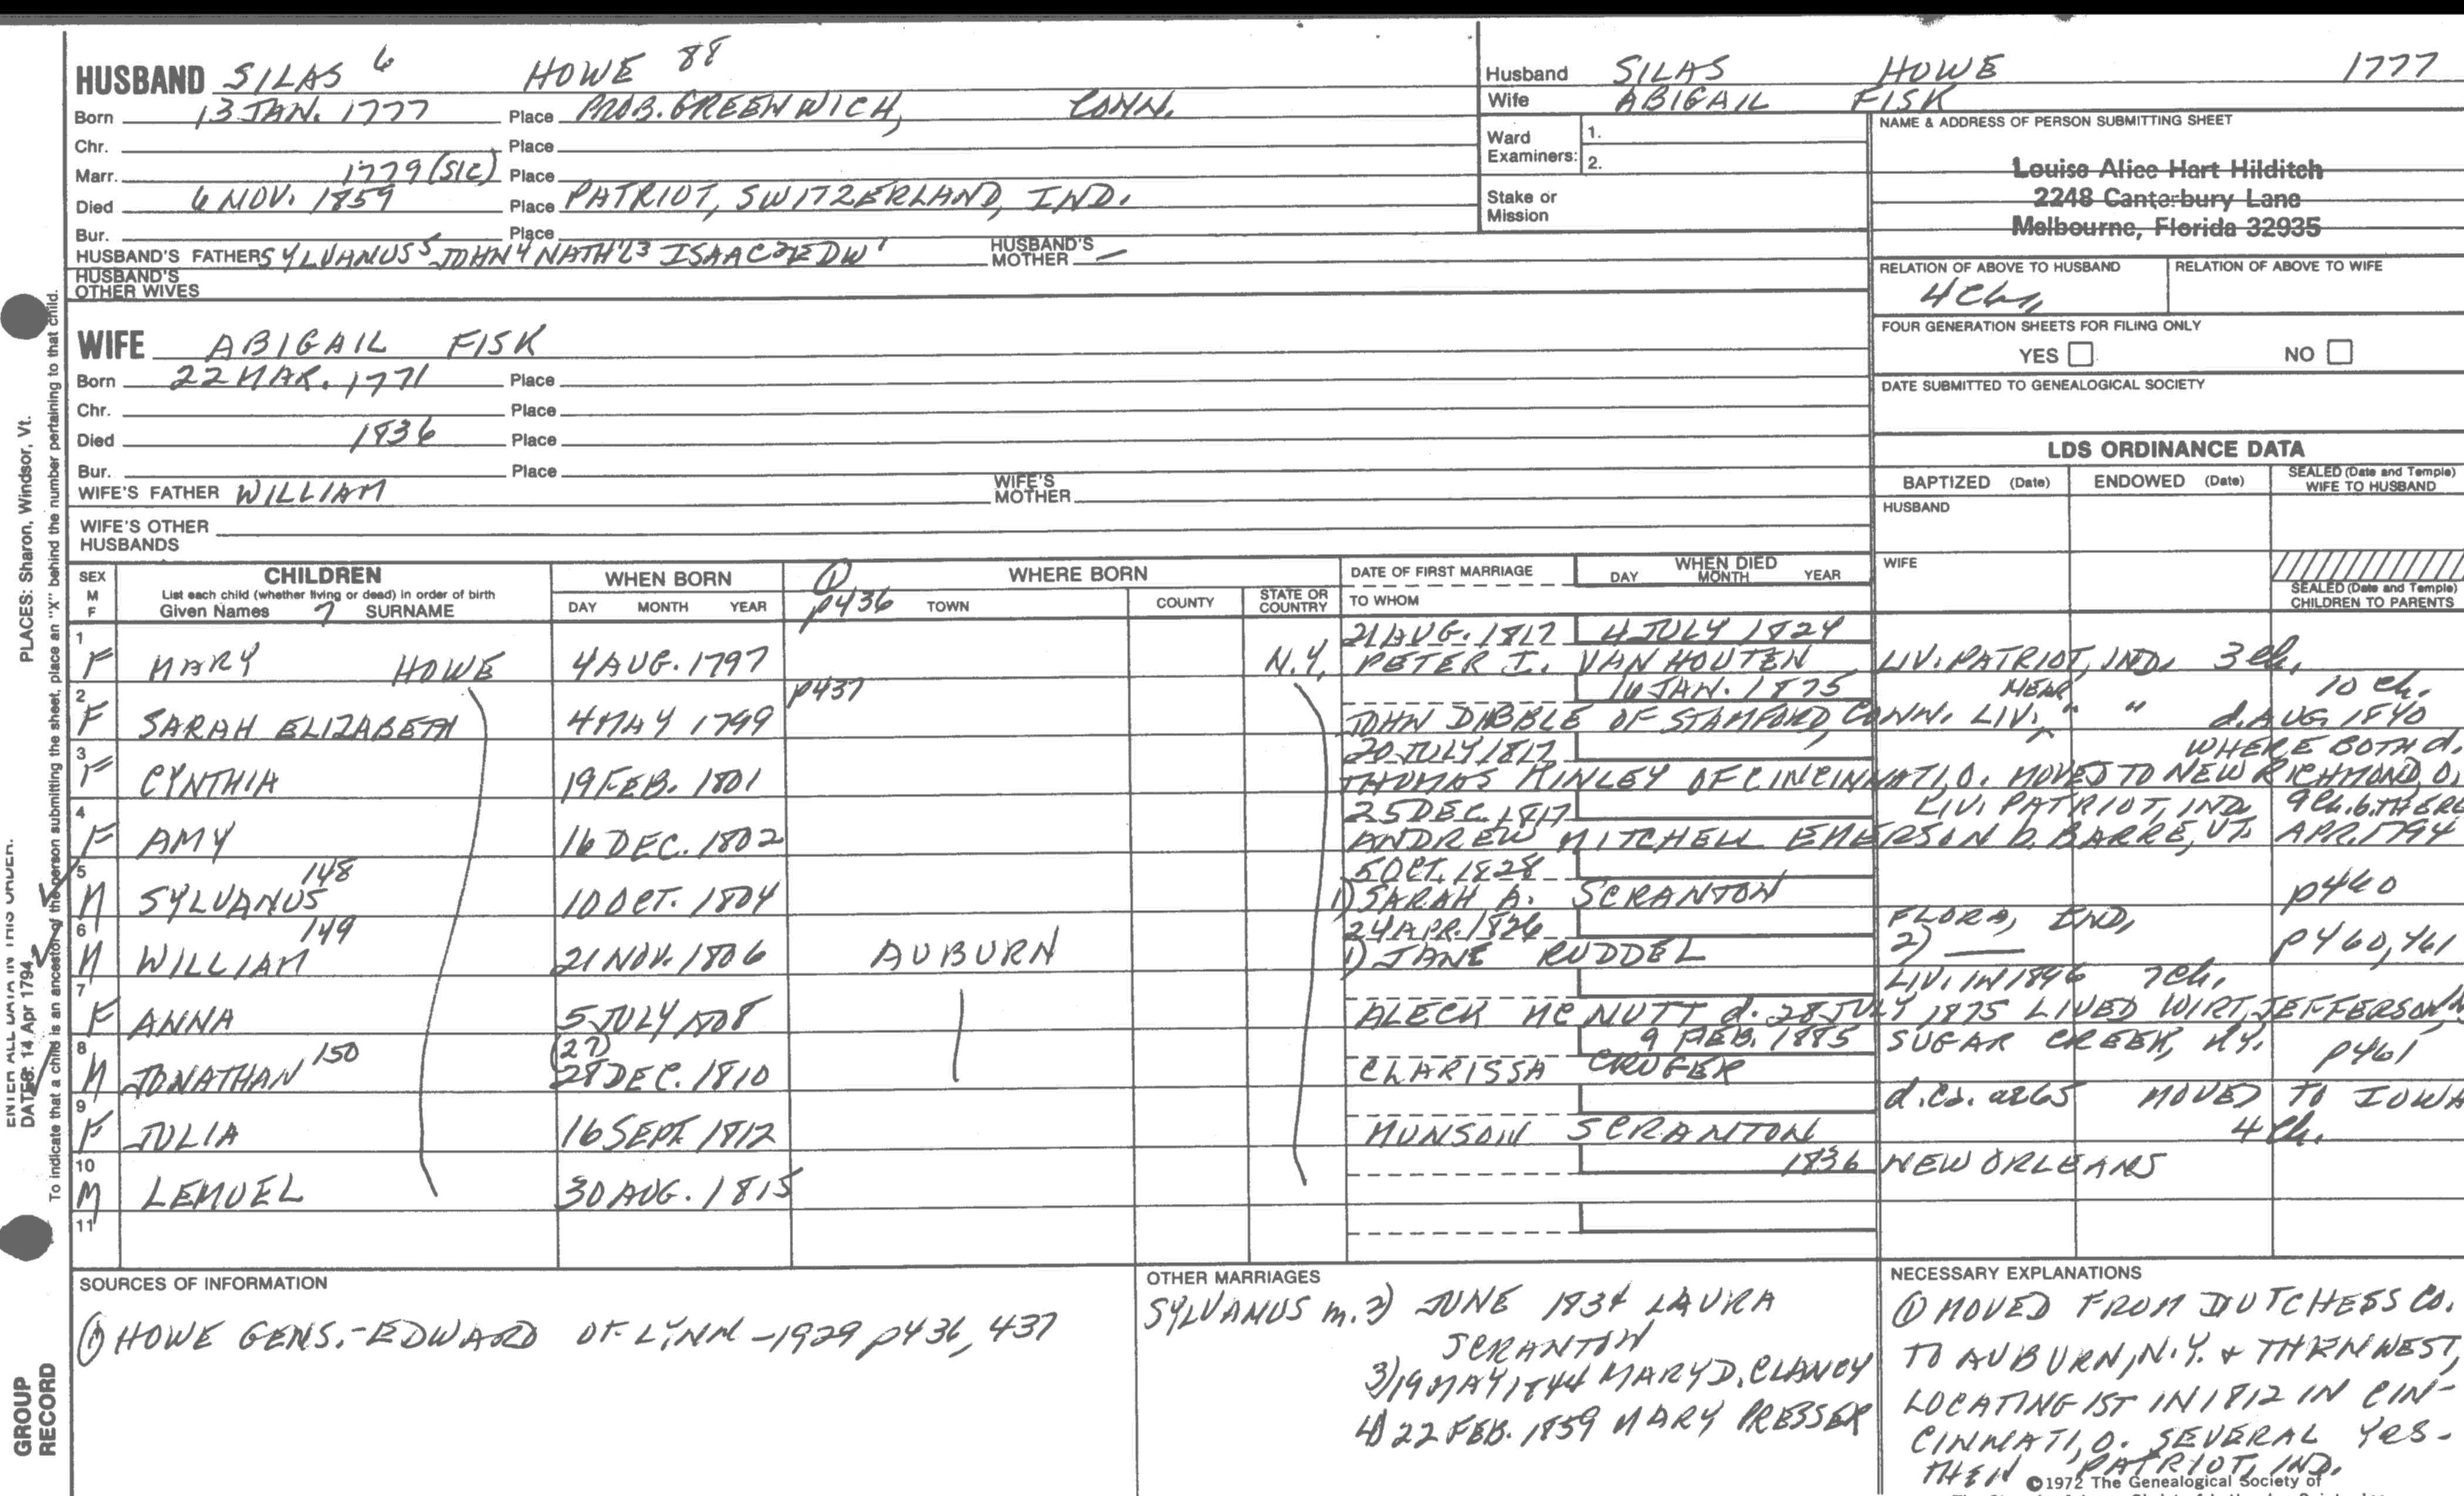 HUSBAND SILAS 6 HOWE 88
Born 13 JAN. 1777 Place PROB. GREENWICH, CONN.
Chr. Place
Marr. 1779 (SIC) Place
Died 6 NOV. 1859 Place PATRIOT, SWITZERLAND, IND.
Bur. Place
HUSBAND'S FATHER SYLVANUS 5 JOHN 4 NATH'L 3 ISAAC 2 EDW 1 HUSBAND'S MOTHER —
HUSBAND'S OTHER WIVES
Husband SILAS HOWE 1777
Wife ABIGAIL FISK
Ward Examiners: 1.
2.
Stake or Mission
NAME & ADDRESS OF PERSON SUBMITTING SHEET
Louise Alice Hart Hilditch
2248 Canterbury Lane
Melbourne, Florida 32935
RELATION OF ABOVE TO HUSBAND RELATION OF ABOVE TO WIFE
FOUR GENERATION SHEETS FOR FILING ONLY
YES NO
DATE SUBMITTED TO GENEALOGICAL SOCIETY
WIFE ABIGAIL FISK
Born 22 MAR. 1771 Place
Chr. Place
Died 1836 Place
Bur. Place
WIFE'S FATHER WILLIAM WIFE'S MOTHER
WIFE'S OTHER HUSBANDS
LDS ORDINANCE DATA
BAPTIZED (Date) ENDOWED (Date) SEALED (Date and Temple) WIFE TO HUSBAND
HUSBAND
WIFE
SEALED (Date and Temple) CHILDREN TO PARENTS
SEX M F CHILDREN WHEN BORN ① WHERE BORN DATE OF FIRST MARRIAGE WHEN DIED
List each child (whether living or dead) in order of birth
Given Names 7 SURNAME DAY MONTH YEAR p436 TOWN COUNTY STATE OR COUNTRY TO WHOM DAY MONTH YEAR
1 21 AUG. 1817 4 JULY 1824
F MARY HOWE 4 AUG. 1797 N.Y. PETER I. VAN HOUTEN LIV. PATRIOT, IND. 3 ch.
2 p437 16 JAN. 1875 NEAR 10 ch.
F SARAH ELIZABETH 4 MAY 1799 JOHN DIBBLE OF STAMFORD, CONN. LIV. " " d. AUG. 1840
3 20 JULY 1817 WHERE BOTH d.
F CYNTHIA 19 FEB. 1801 THOMAS HINLEY OF CINCINNATI, O. MOVED TO NEW RICHMOND, O.
4 25 DEC. 1817 LIV. PATRIOT, IND. 9 ch. b. THERE
F AMY 16 DEC. 1802 ANDREW MITCHELL EMERSON b. BARRE, VT. APR. 1794
5 148 5 OCT. 1828
M SYLVANUS 10 OCT. 1804 1) SARAH A. SCRANTON p460
6 149 24 APR. 1826 FLORA, IND.
M WILLIAM 21 NOV. 1806 AUBURN 1) JANE RUDDEL 2) — p460, 461
7 LIV. IN 1896 7 ch.
F ANNA 5 JULY 1808 ALECK MC NUTT d. 28 JULY 1875 LIVED WIRT, JEFFERSON,
8 150 (27) 9 FEB. 1885 SUGAR CREEK, KY.
M JONATHAN 28 DEC. 1810 CLARISSA CRUGER p461
9 d. ca. ae 65 MOVED TO IOWA
F JULIA 16 SEPT. 1812 MUNSON SCRANTON 4 ch.
10 1836 NEW ORLEANS
M LEMUEL 30 AUG. 1815
11
SOURCES OF INFORMATION
① HOWE GENS.-EDWARD OF LYNN-1929 p436, 437
OTHER MARRIAGES
SYLVANUS m. 2) JUNE 1834 LAURA
SCRANTON
3) 19 MAY 1844 MARY D. CLANCY
4) 22 FEB. 1859 MARY PRESSER
NECESSARY EXPLANATIONS
① MOVED FROM DUTCHESS CO.
TO AUBURN, N.Y. & THEN WEST,
LOCATING 1ST IN 1812 IN CIN-
CINNATI, O. SEVERAL YRS.
THEN PATRIOT, IND.
©1972 The Genealogical Society of
PLACES: Sharon, Windsor, Vt.
ENTER ALL DATA IN THIS ORDER:
DATES: 14 Apr 1794
To indicate that a child is an ancestor of the person submitting the sheet, place an "X" behind the number pertaining to that child.
GROUP RECORD